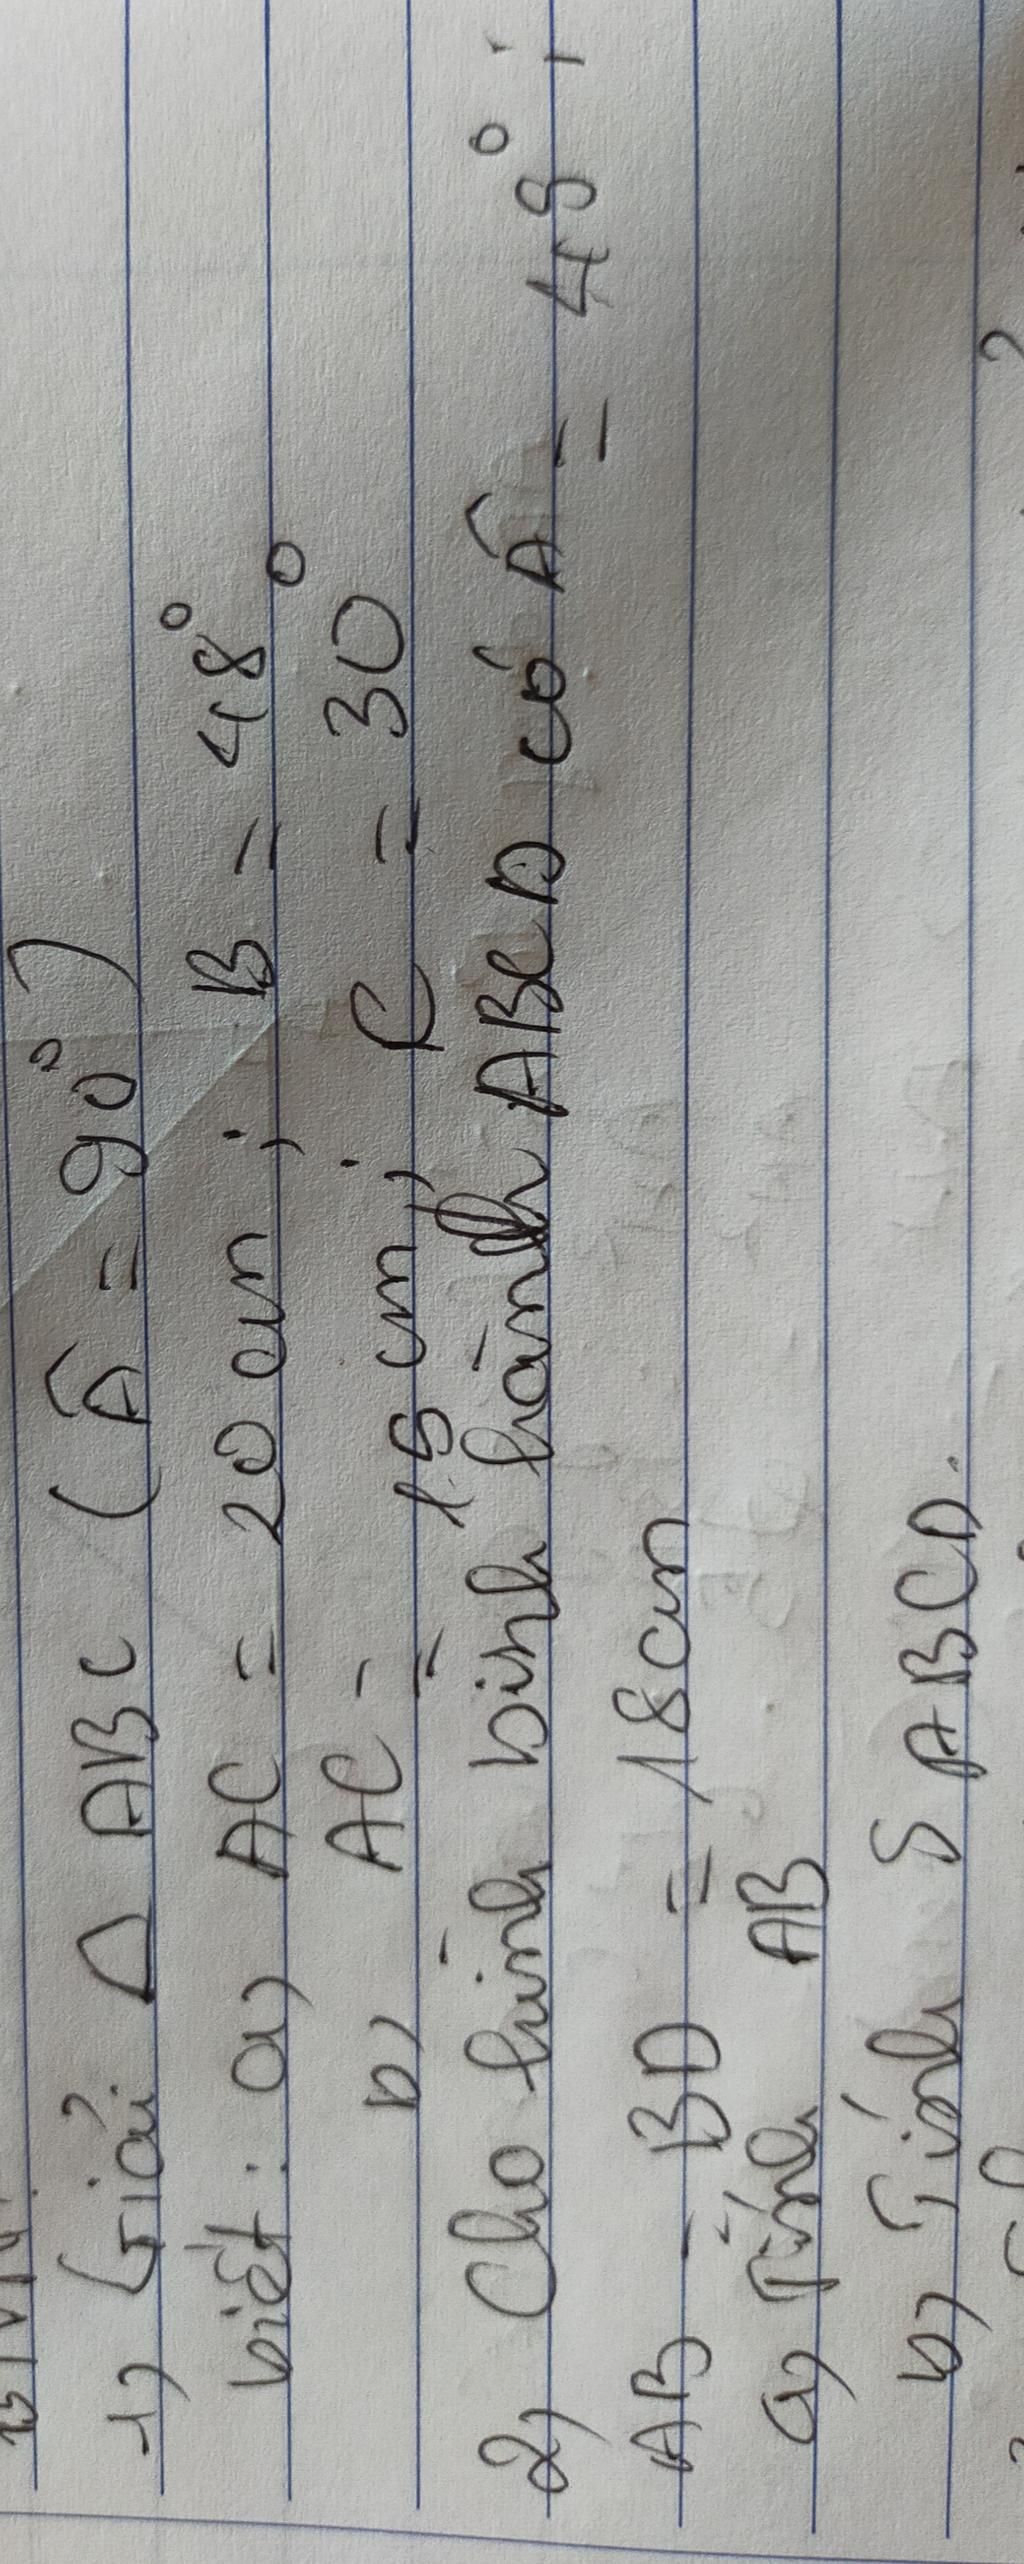 BTVN:
1, Giải Δ ABC (Â = 90°)
biết: a, AC = 20 cm; B = 48°
b, AC = 15 cm; C = 30°
2, Cho hình bình hành ABCD có Â = 48°,
AB = BD = 18cm
a, Tính AB
b, Tính S ABCD.